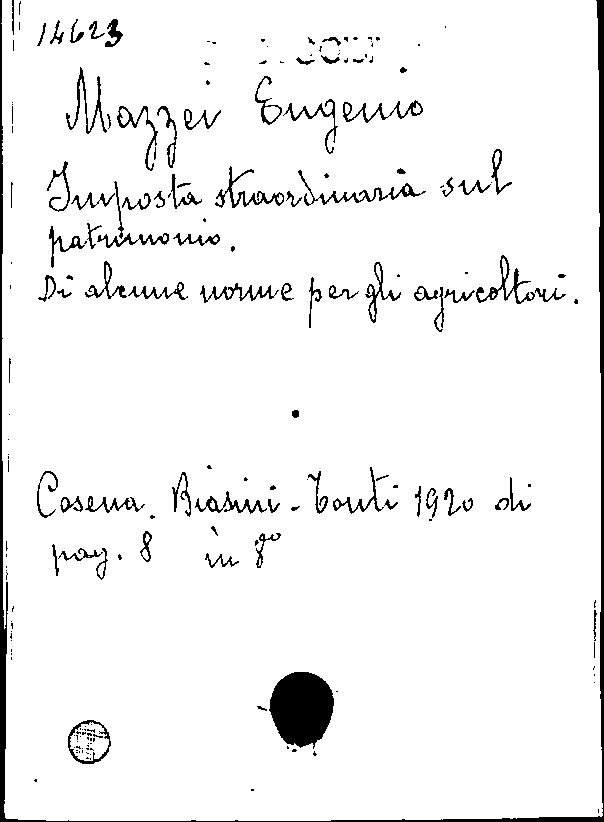 14623
Mazzei Eugenio
Imposta straordinaria sul
patrimonio.
Di alcune norme per gli agricoltori.
Cesena. Biasini - Tonti 1920 di
pag. 8 in 8º